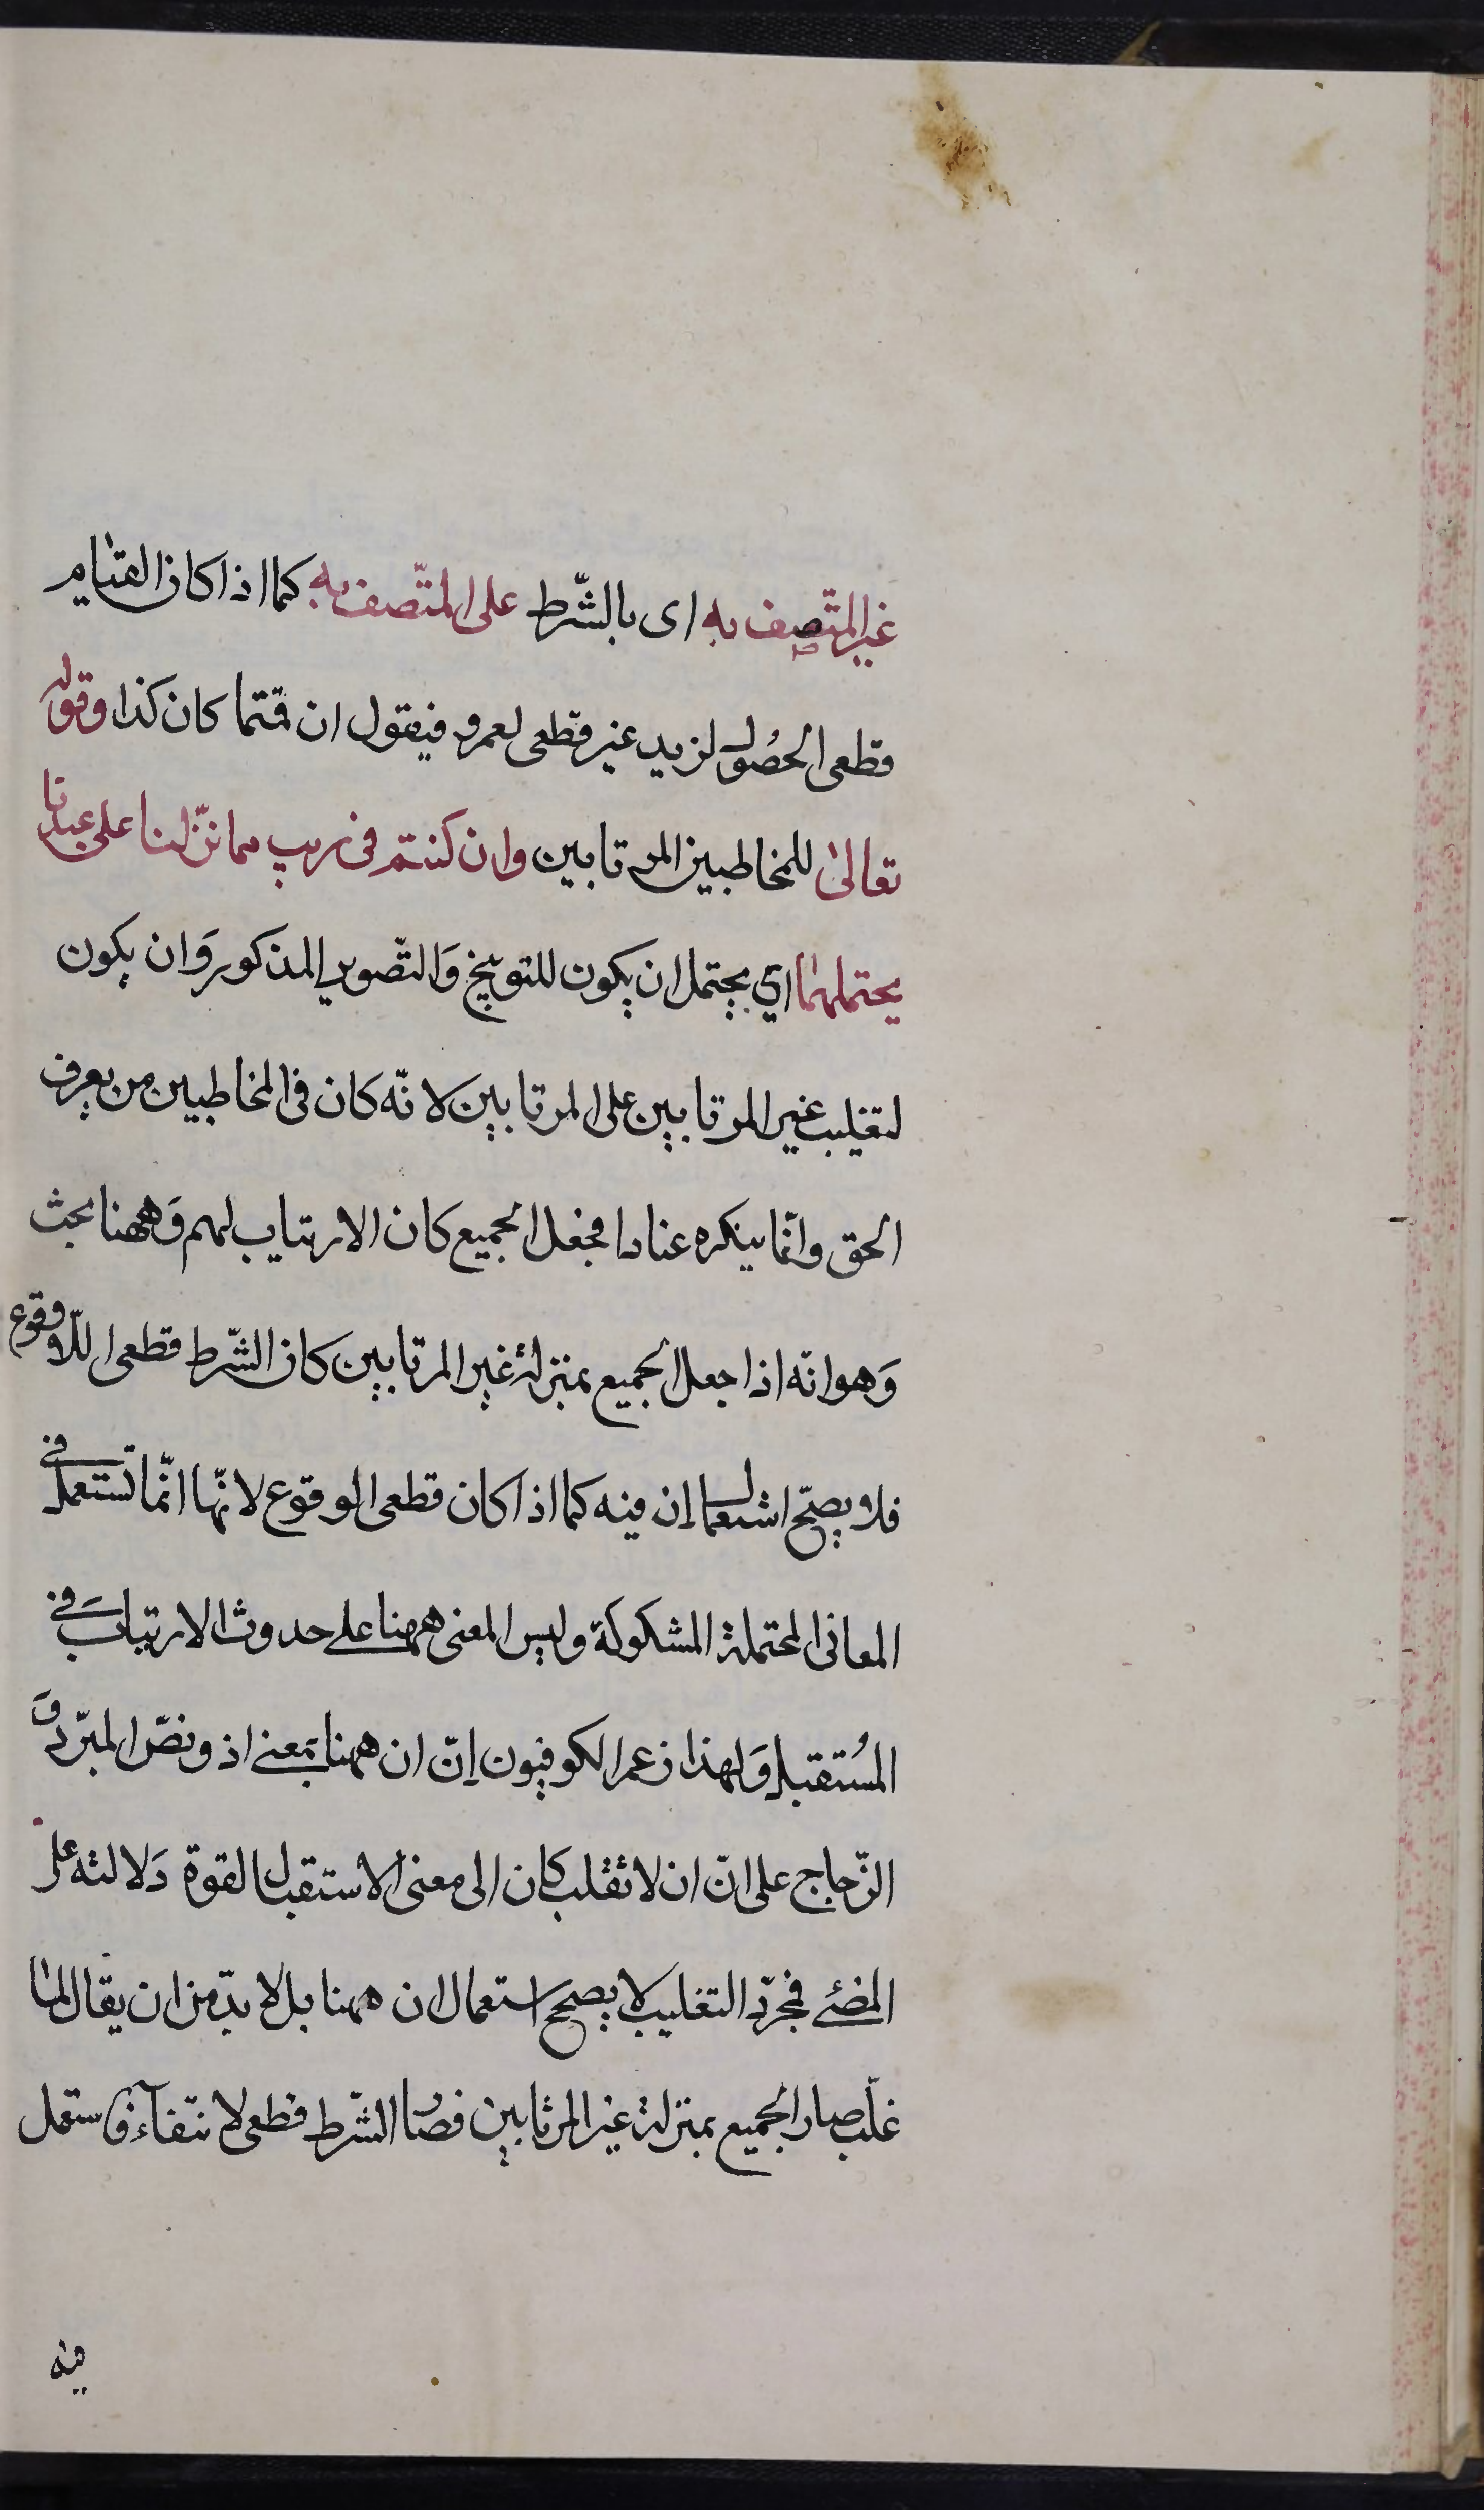 غير المتّصف به اى بالشّرط على المتّصف به كما اذا كان القيام
قطعى الحصُول لزيد غير قطعى لعمرو فيقول ان قمتما كان كذا وقوله
تعالىٰ للمخاطبين المرتابين وان كنتم فى ريب مما نزّلنا على عبدنا
يحتملهما اي يحتمل ان يكون للتوبيخ وَالتّصوير المذكور وَان يكون
لتغليب غير المرتابين على المرتابين لانّه كان فى المخاطبين من يعرف
الحق وانّما ينكره عنادا فجعل الجميع كان الارتياب لهم وَههنا بحث
وَهو انّه اذا جعل الجميع بمنزلة غير المرتابين كان الشّرط قطعى اللّاوقوع
فلا يصحّ استعمال إن فيه كما اذا كان قطعى الوقوع لانّها انّما تستعمل فى
المعانى المحتملة المشكوكة وليس المعنى ههنا على حدوث الارتياب فى
المُستقبل وَلهذا زعم الكوفيون إنّ ان ههنا بمعنى اذ ونصّ المبرّد وَ
الزّجاج على انّ ان لا تقلب كان الى معنى الاستقبال لقوة دَلالته على
المضىّ فمجرّد التغليب لا يصحح استعمال ان ههنا بل لا بدّ من ان يقال لمّا
غلّب صار الجميع بمنزلة غير المرتابين فصار الشّرط قطعى لانتفآء فاستعمل
فيه